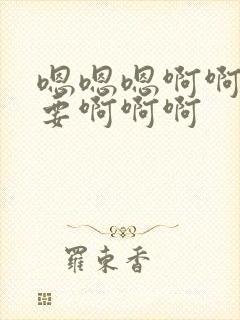 嗯嗯嗯啊啊
要啊啊啊
羅束香